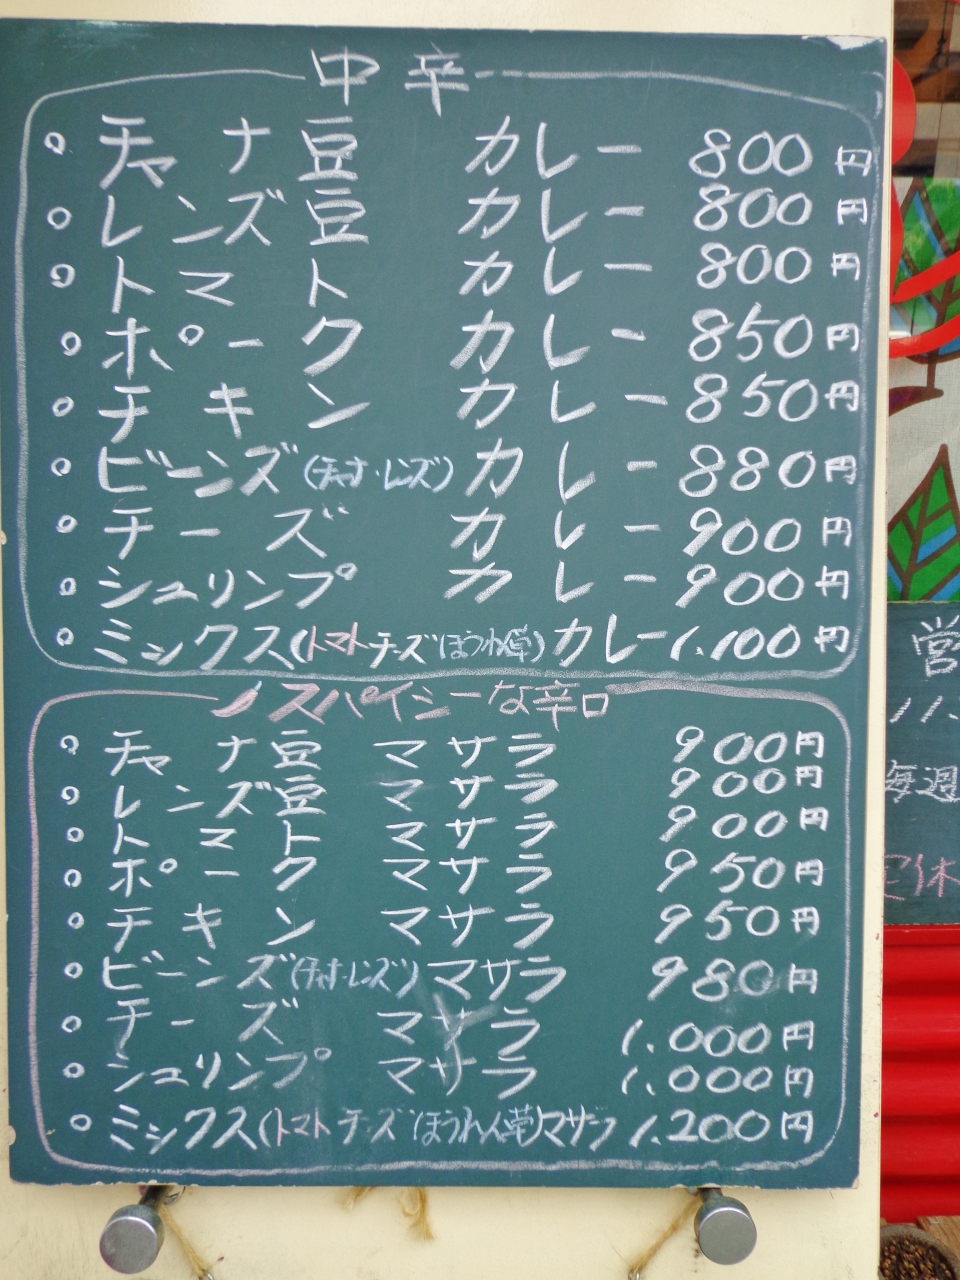 中辛
チャナ豆 カレー 800円
レンズ豆 カレー 800円
トマト カレー 800円
ポーク カレー 850円
チキン カレー 850円
ビーンズ(チャナ・レンズ) カレー 880円
チーズ カレー 900円
シュリンプ カレー 900円
ミックス(トマトチーズほうれん草) カレー 1.100円
スパイシーな辛口
チャナ豆 マサラ 900円
レンズ豆 マサラ 900円
トマト マサラ 900円
ポーク マサラ 950円
チキン マサラ 950円
ビーンズ(チャナ・レンズ) マサラ 980円
チーズ マサラ 1.000円
シュリンプ マサラ 1.000円
ミックス(トマトチーズほうれん草)マサラ 1.200円
営
11.
毎週
定休